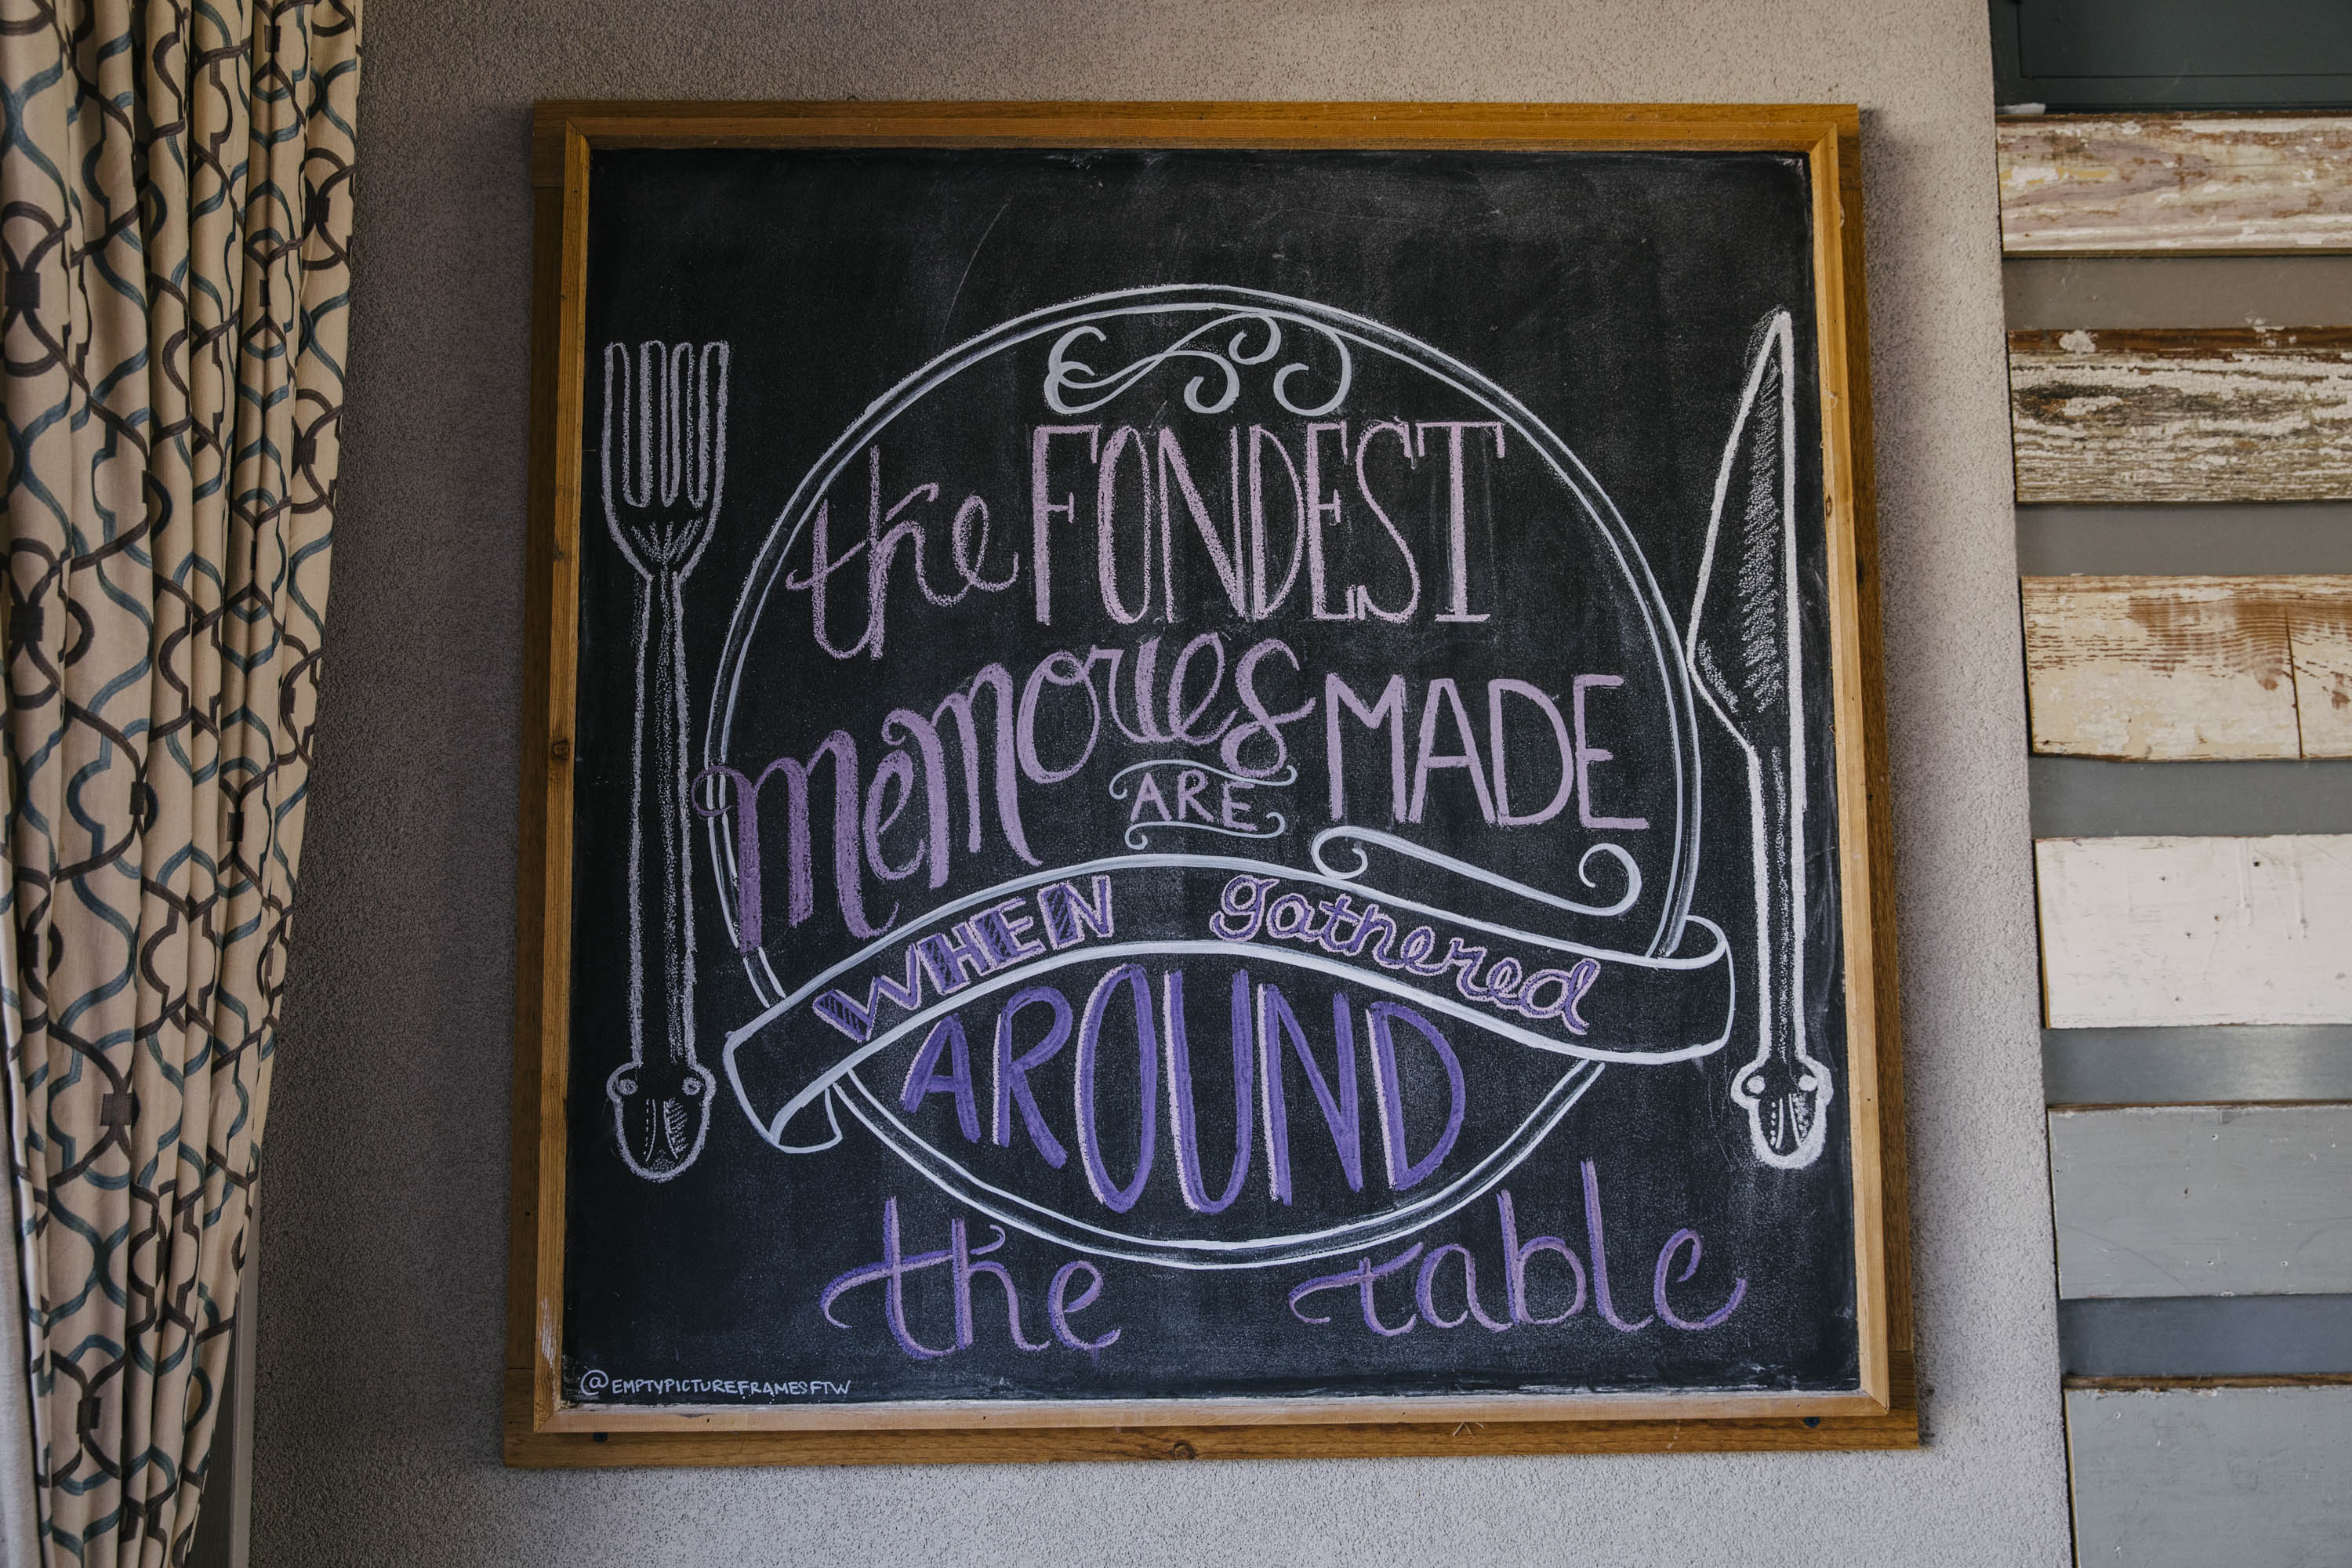 the FONDEST
memories ARE MADE
WHEN gathered
AROUND
the table
@EMPTYPICTUREFRAMESFTW